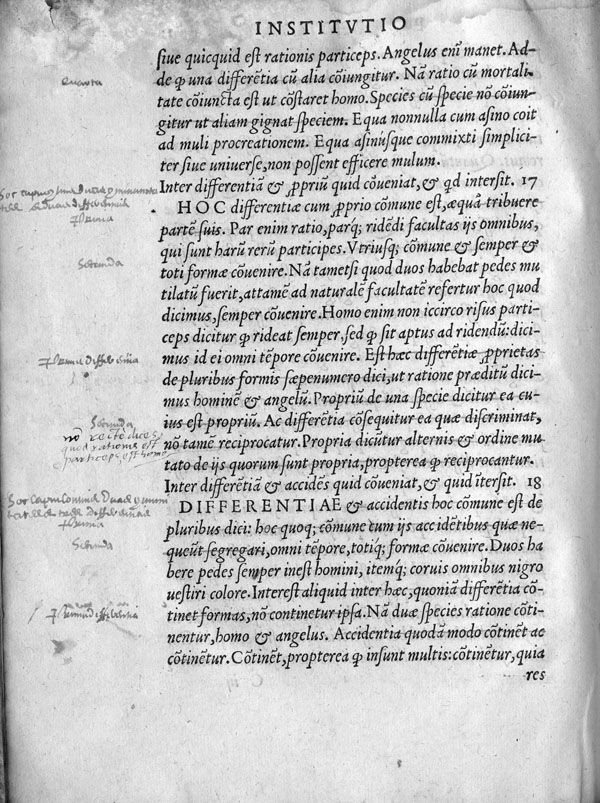 INSTITVTIO
siue quicquid est rationis particeps. Angelus enĩ manet. Ad-
de ꝙ una differẽtia cũ alia cõiungitur. Nã ratio cũ mortali-
Quarta
tate cõiuncta est ut cõstaret homo. Species cũ specie nõ cõiun-
gitur ut aliam gignat speciem. Equa nonnulla cum asino coit
ad muli procreationem. Equa asinusque commixti simplici-
ter siue uniuerse, non possent efficere mulum.
Inter differentiã & ꝓpriũ quid cõueniat, & qd intersit. 17
HOC differentiæ cum ꝓprio cõmune est, æquã tribuere
partẽ suis. Par enim ratio, parq; ridẽdi facultas ijs omnibus,
qui sunt harũ rerũ participes. Vtriusq; cõmune & semper &
Secunda
toti formæ cõuenire. Nã tametsi quod duos habebat pedes mu
tilatũ fuerit, attamẽ ad naturalẽ facultatẽ refertur hoc quod
dicimus, semper cõuenire. Homo enim non iccirco risus parti-
ceps dicitur ꝙ rideat semper, sed ꝙ sit aptus ad ridendũ: dici-
mus id ei omni tẽpore cõuenire. Est hæc differẽtiæ ꝓprietas
de pluribus formis sæpenumero dici, ut ratione præditũ dici-
mus hominẽ & angelũ. Propriũ de una specie dicitur ea cu-
ius est propriũ. Ac differẽtia cõsequitur ea quæ discriminat,
Secunda
nõ recte dices
quod rationis est
particeps est homo
nõ tamẽ reciprocatur. Propria dicũtur alternis & ordine mu
tato de ijs quorum sunt propria, propterea ꝙ reciprocantur.
Inter differẽtiã & accidẽs quid cõueniat, & quid ĩtersit. 18
DIFFERENTIAE & accidentis hoc cõmune est de
pluribus dici: hoc quoq; cõmune cum ijs accidẽtibus quæ ne-
queũt segregari, omni tẽpore, totiq; formæ cõuenire. Duos ha
Secunda
bere pedes semper inest homini, itemq; coruis omnibus nigro
uestiri colore. Interest aliquid inter hæc, quoniã differẽtia cõ-
tinet formas, nõ continetur ipsa. Nã duæ species ratione cõti-
nentur, homo & angelus. Accidentia quodã modo cõtinẽt ac
cõtinẽtur. Cõtinẽt, propterea ꝙ insunt multis: cõtinẽtur, quia
res